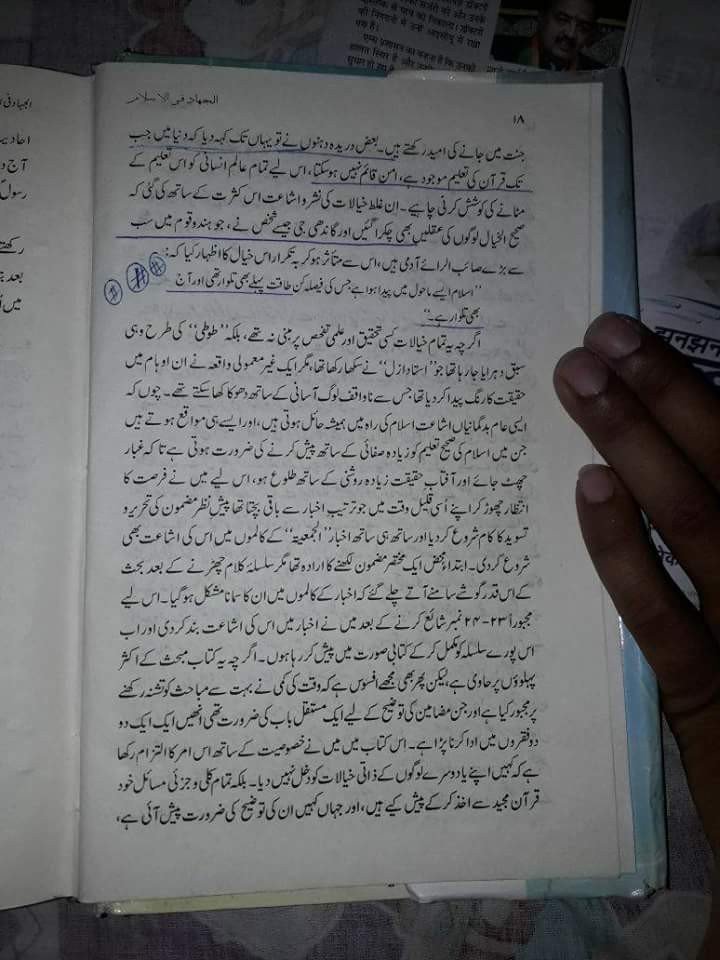 الجہاد فی الاسلام
۱۸
جنت میں جانے کی امید رکھتے ہیں۔ بعض دریدہ دہنوں نے تو یہاں تک کہہ دیا کہ دنیا میں جب
تک قرآن کی تعلیم موجود ہے، امن قائم نہیں ہوسکتا، اس لیے تمام عالمِ انسانی کو اس تعلیم کے
مٹانے کی کوشش کرنی چاہیے۔ اِن غلط خیالات کی نشر و اشاعت اس کثرت کے ساتھ کی گئی کہ
صحیح الخیال لوگوں کی عقلیں بھی چکرا گئیں اور گاندھی جی جیسے شخص نے، جو ہندو قوم میں سب
سے بڑے صائب الرائے آدمی ہیں، اس سے متاثر ہو کر بہ تکرار اس خیال کا اظہار کیا کہ:
”اسلام ایسے ماحول میں پیدا ہوا ہے جس کی فیصلہ کن طاقت پہلے بھی تلوار تھی اور آج
بھی تلوار ہے۔“
اگرچہ یہ تمام خیالات کسی تحقیق اور علمی تفحص پر مبنی نہ تھے، بلکہ ”طوطی“ کی طرح وہی
سبق دہرایا جا رہا تھا جو ”استادِ ازل“ نے سکھا رکھا تھا، مگر ایک غیر معمولی واقعہ نے ان اوہام میں
حقیقت کا رنگ پیدا کر دیا تھا جس سے ناواقف لوگ آسانی کے ساتھ دھوکا کھا سکتے تھے۔ چوں کہ
ایسی عام بدگمانیاں اشاعتِ اسلام کی راہ میں ہمیشہ حائل ہوتی ہیں، اور ایسے ہی مواقع ہوتے ہیں
جن میں اسلام کی صحیح تعلیم کو زیادہ صفائی کے ساتھ پیش کرنے کی ضرورت ہوتی ہے تاکہ غبار
چھٹ جائے اور آفتابِ حقیقت زیادہ روشنی کے ساتھ طلوع ہو، اس لیے میں نے فرصت کا
انتظار چھوڑ کر اپنے اُسی قلیل وقت میں جو ترتیب اخبار سے باقی بچتا تھا پیشِ نظر مضمون کی تحریر و
تسوید کا کام شروع کر دیا اور ساتھ ہی ساتھ اخبار ”الجمعیۃ“ کے کالموں میں اس کی اشاعت بھی
شروع کر دی۔ ابتداءً محض ایک مختصر مضمون لکھنے کا ارادہ تھا مگر سلسلۂ کلام چھڑنے کے بعد بحث
کے اس قدر گوشے سامنے آتے چلے گئے کہ اخبار کے کالموں میں ان کا سمانا مشکل ہو گیا۔ اس لیے
مجبوراً ۲۳-۲۴ نمبر شائع کرنے کے بعد میں نے اخبار میں اس کی اشاعت بند کر دی اور اب
اس پورے سلسلہ کو مکمل کر کے کتابی صورت میں پیش کر رہا ہوں۔ اگرچہ یہ کتاب مبحث کے اکثر
پہلوؤں پر حاوی ہے، لیکن پھر بھی مجھے افسوس ہے کہ وقت کی کمی نے بہت سے مباحث کو تشنہ رکھنے
پر مجبور کیا ہے اور جن مضامین کی توضیح کے لیے ایک مستقل باب کی ضرورت تھی انھیں ایک ایک دو
دو فقروں میں ادا کرنا پڑا ہے۔ اس کتاب میں میں نے خصوصیت کے ساتھ اس امر کا التزام رکھا
ہے کہ کہیں اپنے یا دوسرے لوگوں کے ذاتی خیالات کو دخل نہیں دیا۔ بلکہ تمام کلی و جزئی مسائل خود
قرآن مجید سے اخذ کر کے پیش کیے ہیں، اور جہاں کہیں ان کی توضیح کی ضرورت پیش آئی ہے،